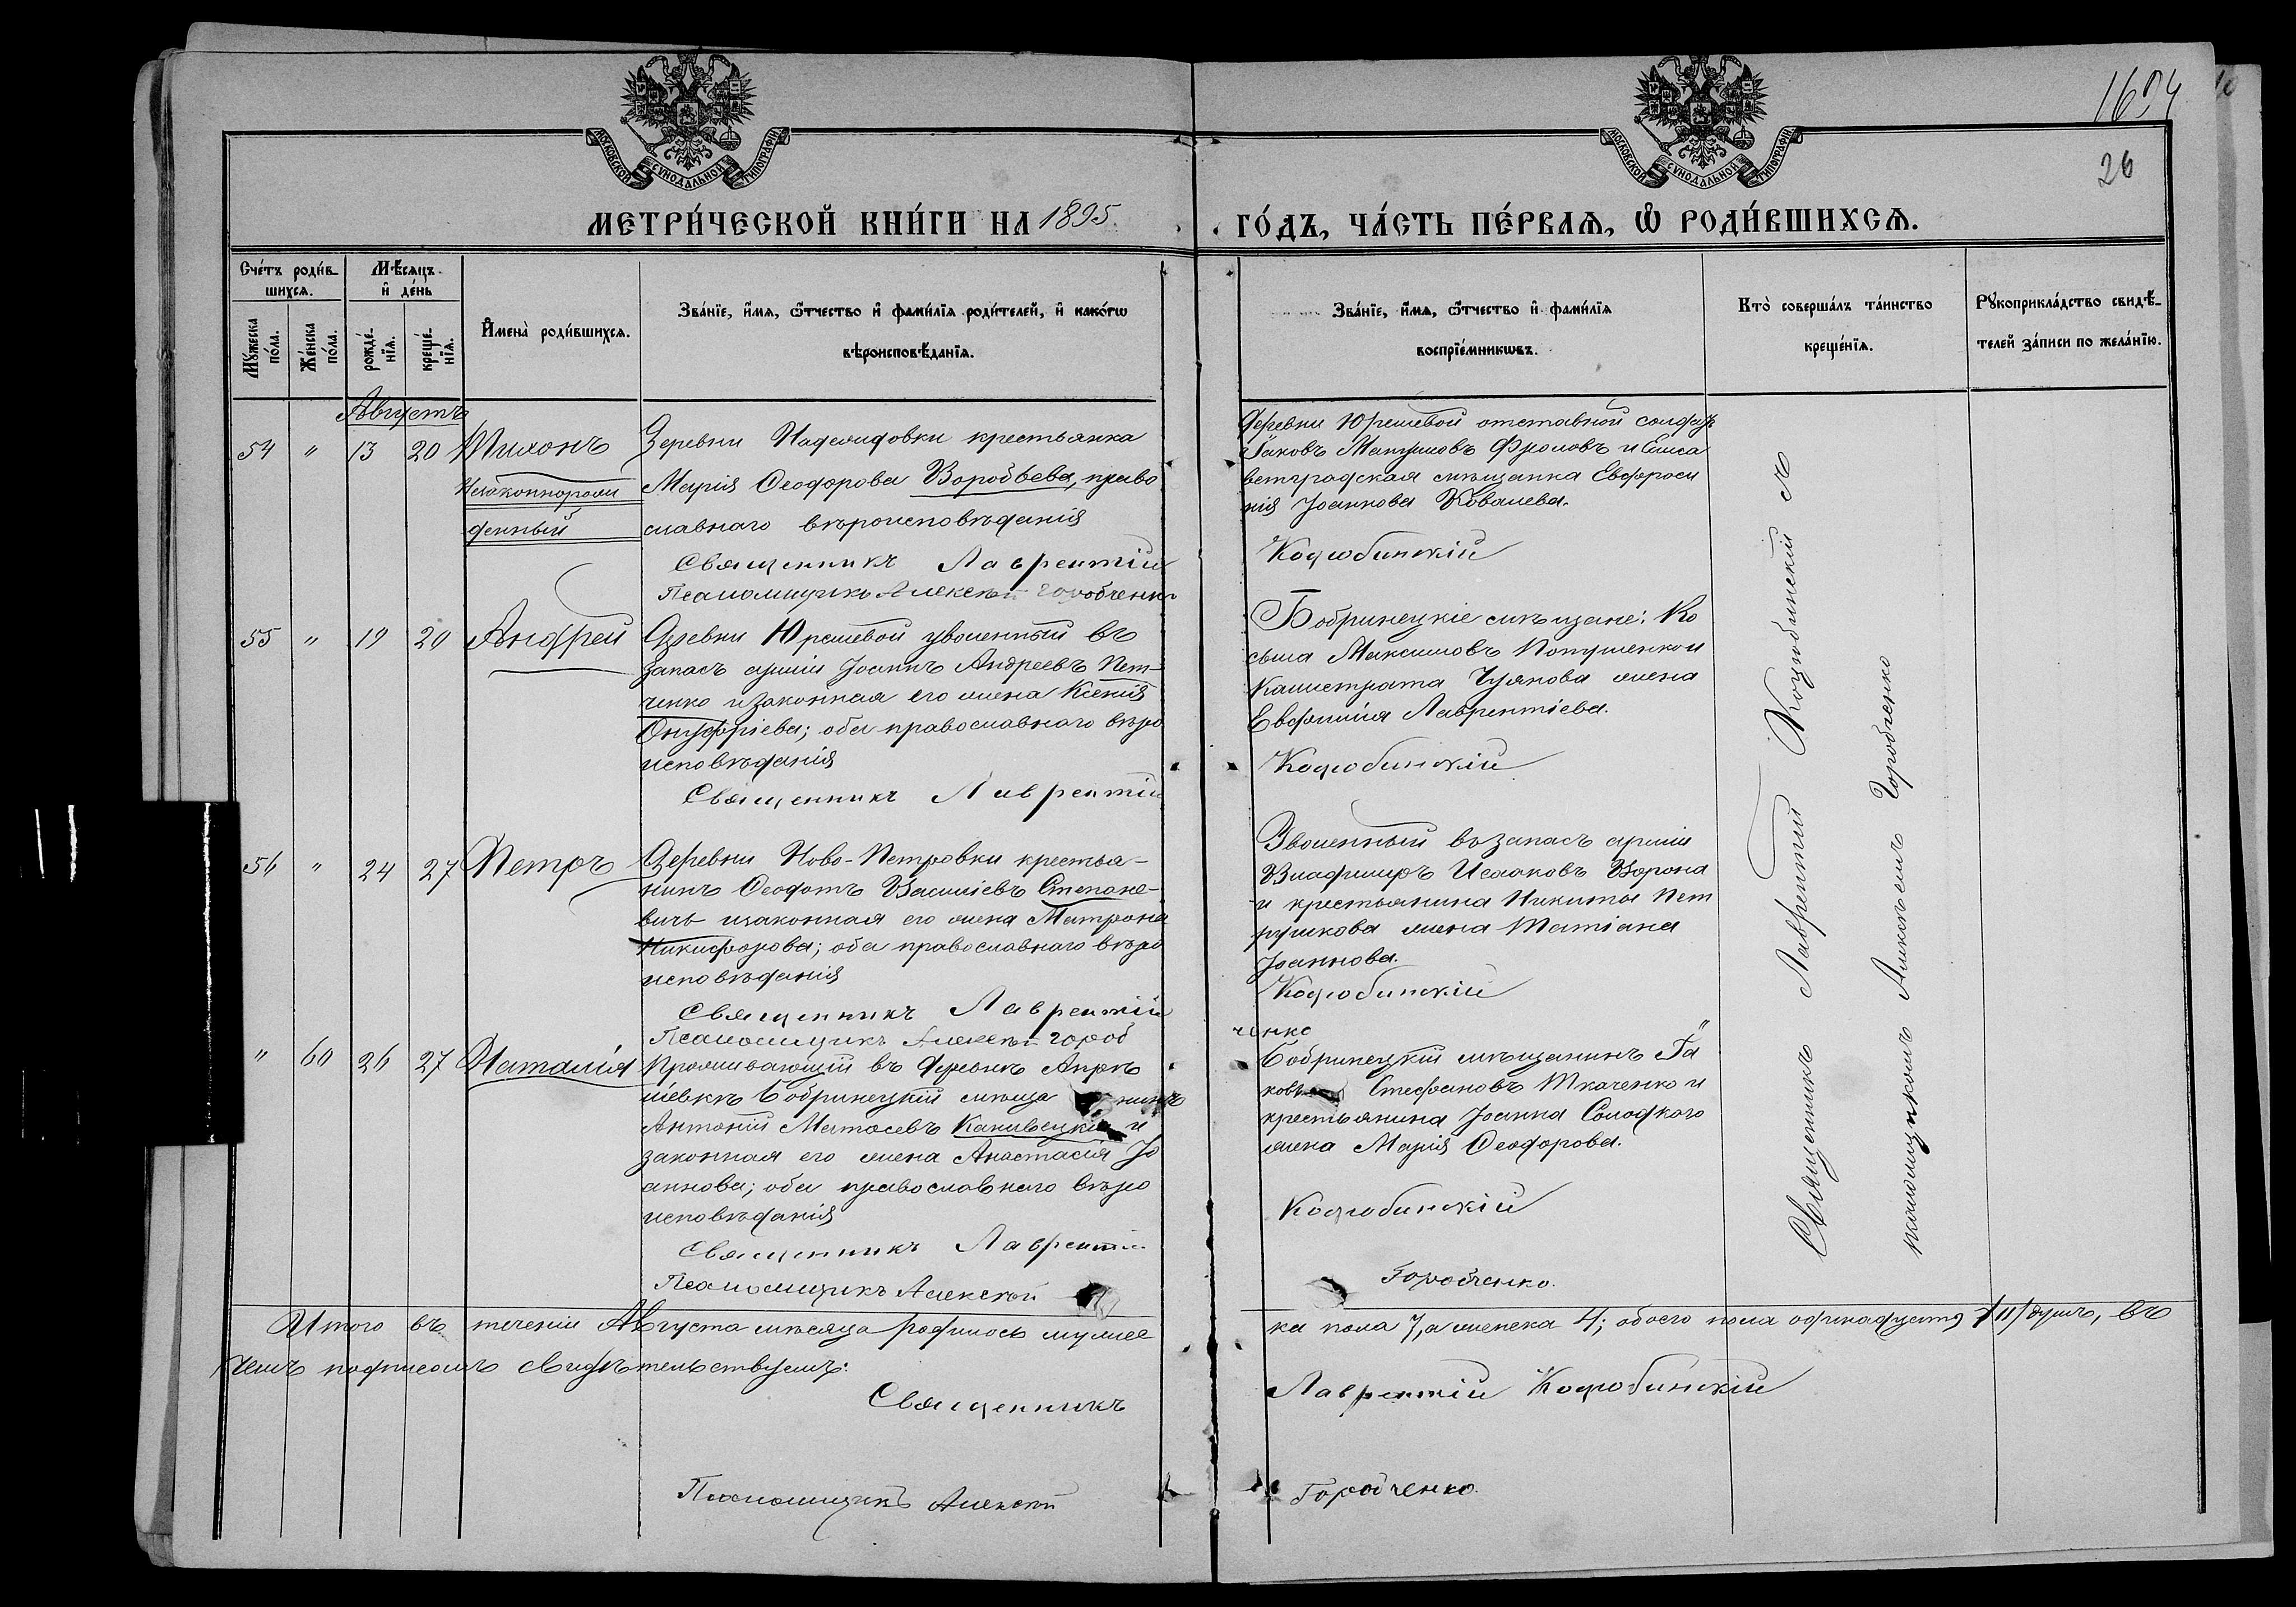 1694
26
МОСКОВСКОЙ СѴНОДАЛЬНОЙ ТИПОГРАФІИ
МОСКОВСКОЙ СѴНОДАЛЬНОЙ ТИПОГРАФІИ
МЕТРИ́ЧЕСКОЙ КНИ́ГИ НА 1895
ГО́ДЪ, ЧА́СТЬ ПЕ́РВАѦ, Ѡ҆ РОДИ́ВШИХСѦ.
Сче́тъ роди́в-
шихсѧ.
Мѣ́сѧцъ
и҆ де́нь
Мꙋ́жеска по́ла.
Же́нска по́ла.
рожде́-
нїѧ.
креще́-
нїѧ.
И҆мена̀ роди́вшихсѧ.
Зва́нїе, и҆́мѧ, ѻ҆́тчество и҆ фами́лїѧ роди́телей, и҆ како́гѡ
вѣроисповѣ́данїѧ.
Зва́нїе, и҆́мѧ, ѻ҆́тчество и҆ фами́лїѧ
воспрїе́мникѡвъ.
Кто̀ соверша́лъ та́инство
креще́нїѧ.
Рꙋкоприкла́дство свидѣ́-
телей за́писи по жела́нїю.
Августъ
54 " 13 20 Тихонъ
Незаконнорож
денный
Деревни Надеждовки крестьянка
Марія Ѳеодорова Воробьева, право
славнаго вѣроисповѣданія
Священникъ Лаврентій
Псаломщикъ Алексѣй Горобченко
Деревни Юрьевой отставной солдатъ
Іаковъ Фроловъ и Елиса
ветградская мѣщанка Евфроси
нія Іоаннова Ковалева.
Коцюбинскій
55 " 19 20 Андрей
Деревни Юрьевой уволенный въ
запасъ арміи Іоаннъ Андреевъ Пет-
ченко и законная его жена Ксенія
Онуфріева; оба православнаго вѣро
исповѣданія
Священникъ Лаврентій
Бобринецкіе мѣщане: Ко
сьма Максимовъ и
Калистрата Чуякова жена
Евфимія Лаврентіева.
Коцюбинскій
56 " 24 27 Петръ
Деревни Ново-Петровки крестья-
нинъ Ѳеодотъ Василіевъ Степане-
вичъ и законная его жена Матрона
Никифорова; оба православнаго вѣро
исповѣданія
Священникъ Лаврентій
Псаломщикъ Алексѣй Гороб
Уволенный въ запасъ арміи
Владиміръ Исааковъ Ворона
и крестьянина Никиты Пет
рушкова жена Татіана
Іоаннова.
Коцюбинскій
ченко
" 60 26 27 Наталія
Проживающій въ деревнѣ Андре
іевкѣ Бобринецкій мѣща нинъ
Антоній Матѳеевъ Канивецкій и
законная его жена Анастасія Іо
аннова; оба православнаго вѣро
исповѣданія
Священникъ Лаврентій
Псаломщикъ Алексѣй
Бобринецкій мѣщанинъ Іа
ковъ Стефановъ Ткаченко и
крестьянина Іоанна Солодкого
жена Марія Ѳеодорова.
Коцюбинскій
Горобченко.
Священникъ Лаврентій Коцюбинскій съ
псаломщикомъ Алексѣемъ Горобченко
Итого въ теченіи Августа мѣсяца родилось мужес
ка пола 7, а женска 4; обоего пола одинадцать /11/ душъ, въ
чемъ подписомъ свидѣтельствуемъ:
Священникъ
Лаврентій Коцюбинскій
Псаломщикъ Алексѣй
Горобченко.